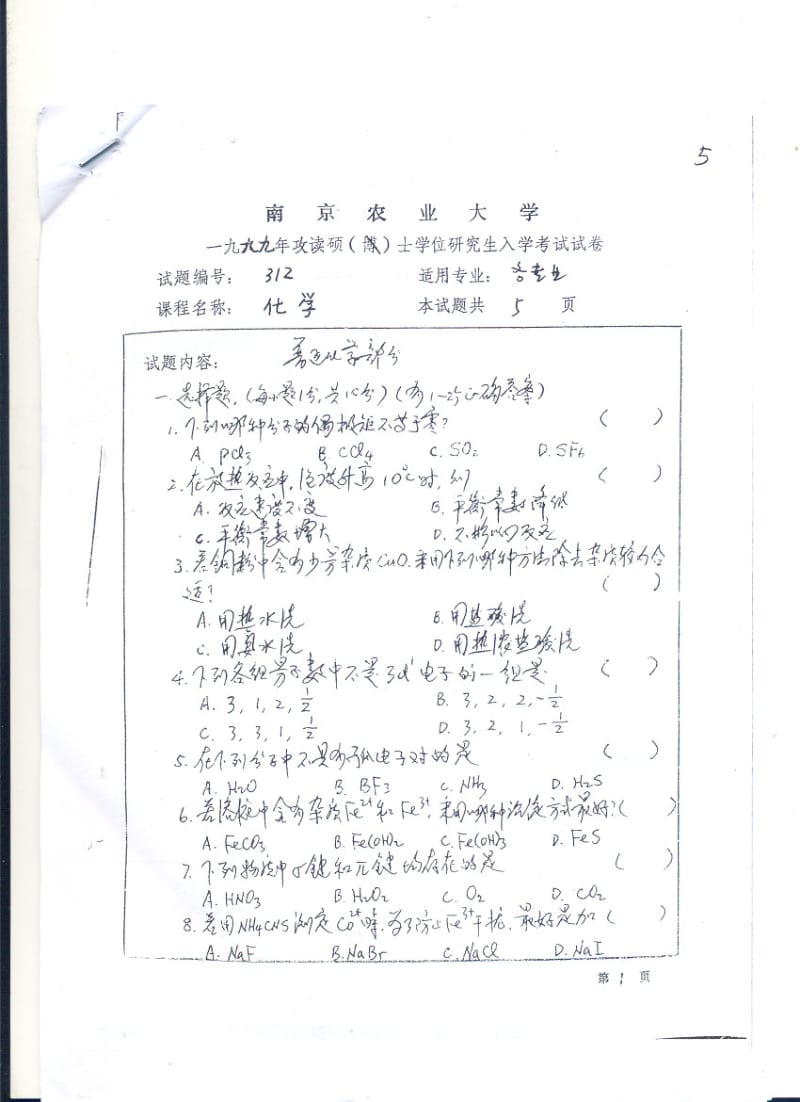 5
南京农业大学
一九九九年攻读硕(博)士学位研究生入学考试试卷
试题编号: 312 适用专业: 各专业
课程名称: 化学 本试题共 5 页
试题内容: 普通化学部分
一.选择题.(每小题1分,共10分)(有1~2个正确答案)
1. 下列哪种分子的偶极矩不等于零? ( )
A. PCl3 B. CCl4 C. SO2 D. SF6
2. 在放热反应中,温度升高10℃时,则 ( )
A. 反应速度不变 B. 平衡常数降低
C. 平衡常数增大 D. 不影响反应
3. 若铜粉中含有少量杂质CuO,采用下列哪种方法除去杂质较为合
适? ( )
A. 用热水洗 B. 用盐酸洗
C. 用氨水洗 D. 用热浓盐酸洗
4. 下列各组量子数中不是3d¹电子的一组是 ( )
A. 3, 1, 2, 1/2 B. 3, 2, 2, -1/2
C. 3, 3, 1, 1/2 D. 3, 2, 1, -1/2
5. 在下列分子中不具有孤电子对的是 ( )
A. H2O B. BF3 C. NH3 D. H2S
6. 若溶液中含有杂质Fe2+和Fe3+,采用哪种沉淀方式最好?( )
A. FeCO3 B. Fe(OH)2 C. Fe(OH)3 D. FeS
7. 下列物质中σ键和π键均存在的是 ( )
A. HNO3 B. H2O2 C. O2 D. CO2
8. 若用NH4CNS测定Co2+时,为了防止Fe3+干扰,最好是加( )
A. NaF B. NaBr C. NaCl D. NaI
第 1 页